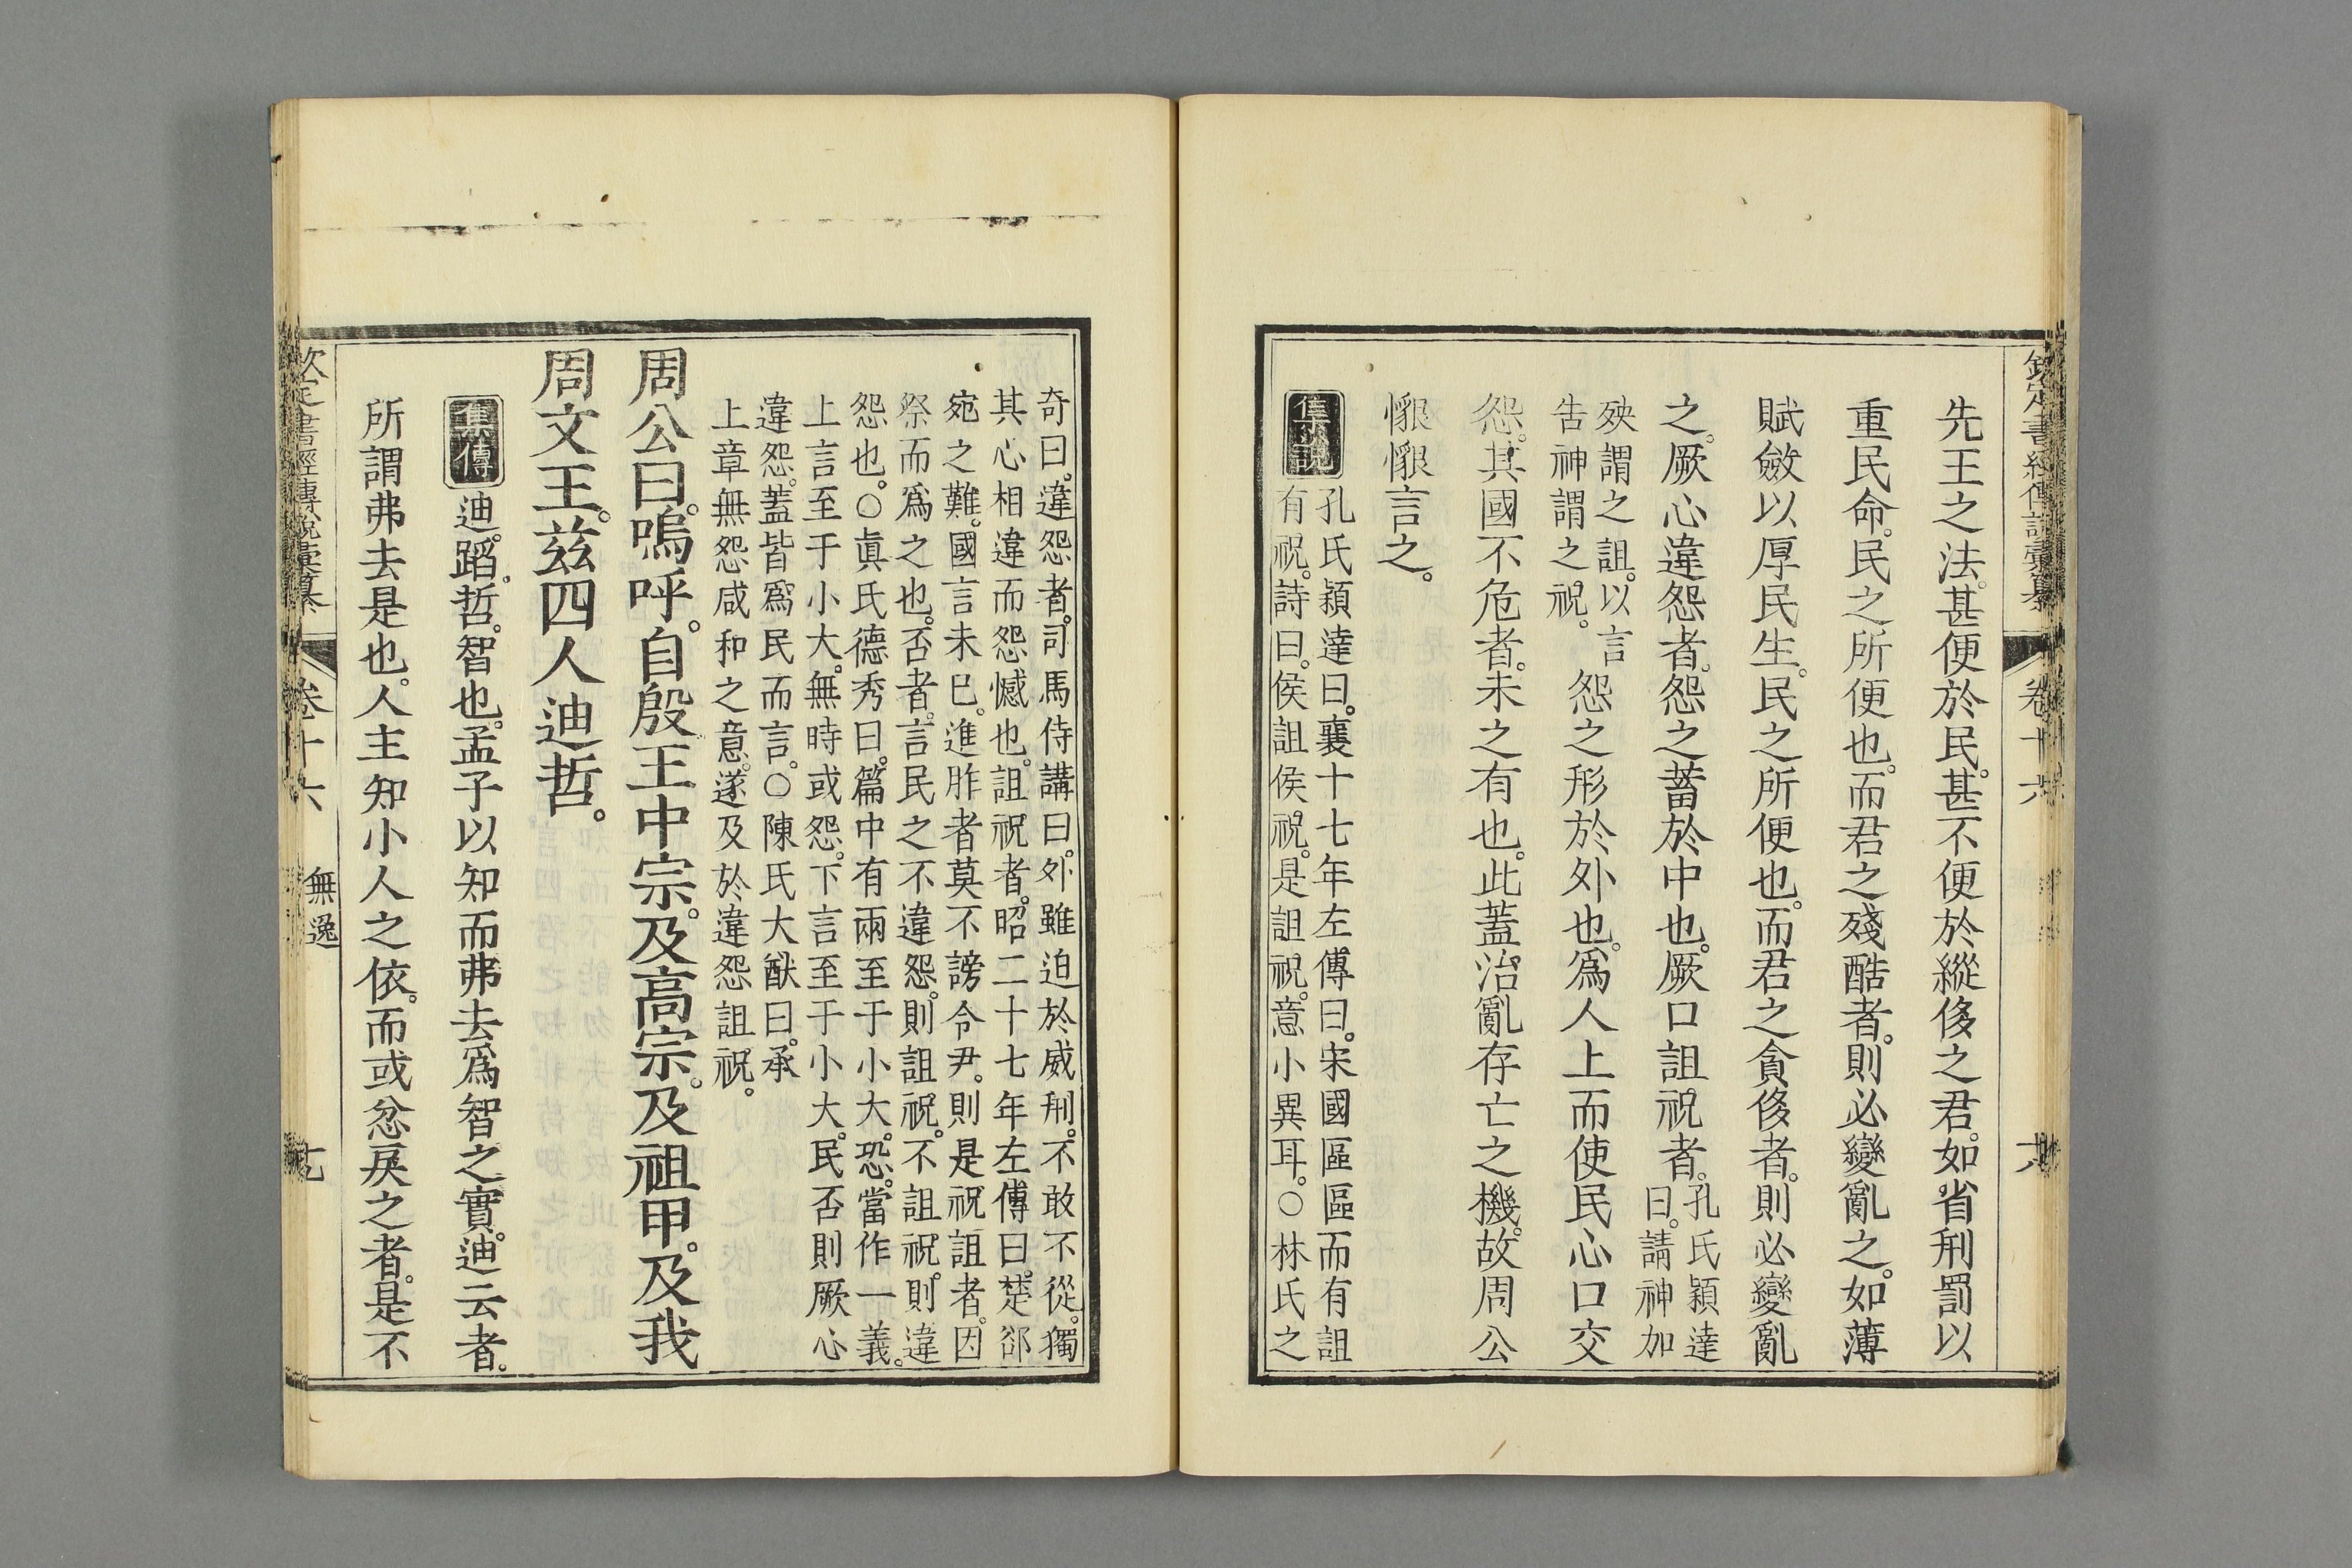 欽定書經傳說彙纂 卷十六
先王之法。甚便於民。甚不便於縱侈之君。如省刑罰以
重民命。民之所便也。而君之殘酷者。則必變亂之。如薄
賦斂以厚民生。民之所便也。而君之貪侈者。則必變亂
之。厥心違怨者。怨之蓄於中也。厥口詛祝者。孔氏穎達
曰。請神加
殃謂之詛。以言
告神謂之祝。怨之形於外也。爲人上而使民心口交
怨。其國不危者。未之有也。此蓋治亂存亡之機。故周公
懇懇言之。
集說
孔氏穎達曰。襄十七年左傳曰。宋國區區而有詛
有祝。詩曰。侯詛侯祝。是詛祝。意小異耳。○林氏之
奇曰。違怨者。司馬侍講曰。外雖迫於威刑。不敢不從。獨
其心相違而怨憾也。詛祝者。昭二十七年左傳曰。楚郤
宛之難。國言未已。進胙者莫不謗令尹。則是祝詛者。因
祭而爲之也。否者。言民之不違怨。則詛祝。不詛祝。則違
怨也。○眞氏德秀曰。篇中有兩至于小大。恐當作一義。
上言至于小大。無時或怨。下言至于小大。民否則厥心
違怨。蓋皆爲民而言。○陳氏大猷曰。承
上章無怨咸和之意。遂及於違怨詛祝。
周公曰。嗚呼。自殷王中宗。及高宗。及祖甲。及我
周文王。茲四人迪哲。
集傳 迪。蹈。哲。智也。孟子以知而弗去爲智之實。迪云者。
所謂弗去是也。人主知小人之依。而或忿戾之者。是不
欽定書經傳說彙纂 卷十六 無逸